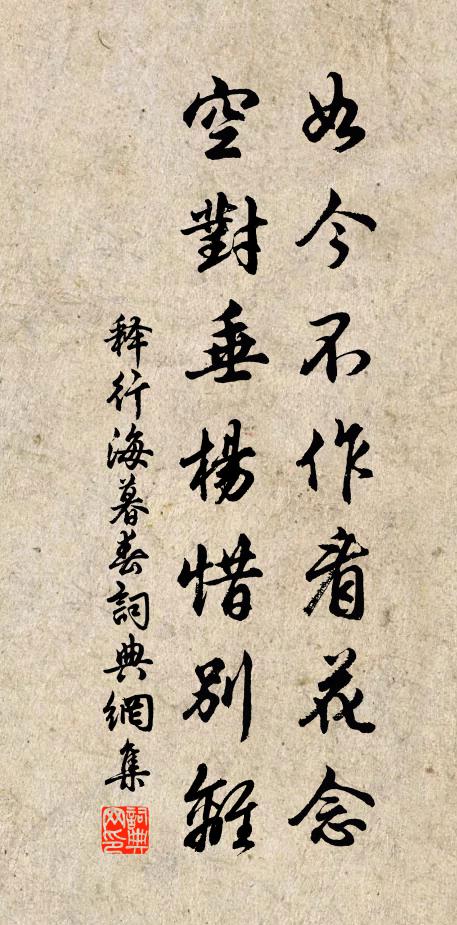 如今不作看花念
空對垂楊惜別離
释行海暮春詞典網集
詞典网印